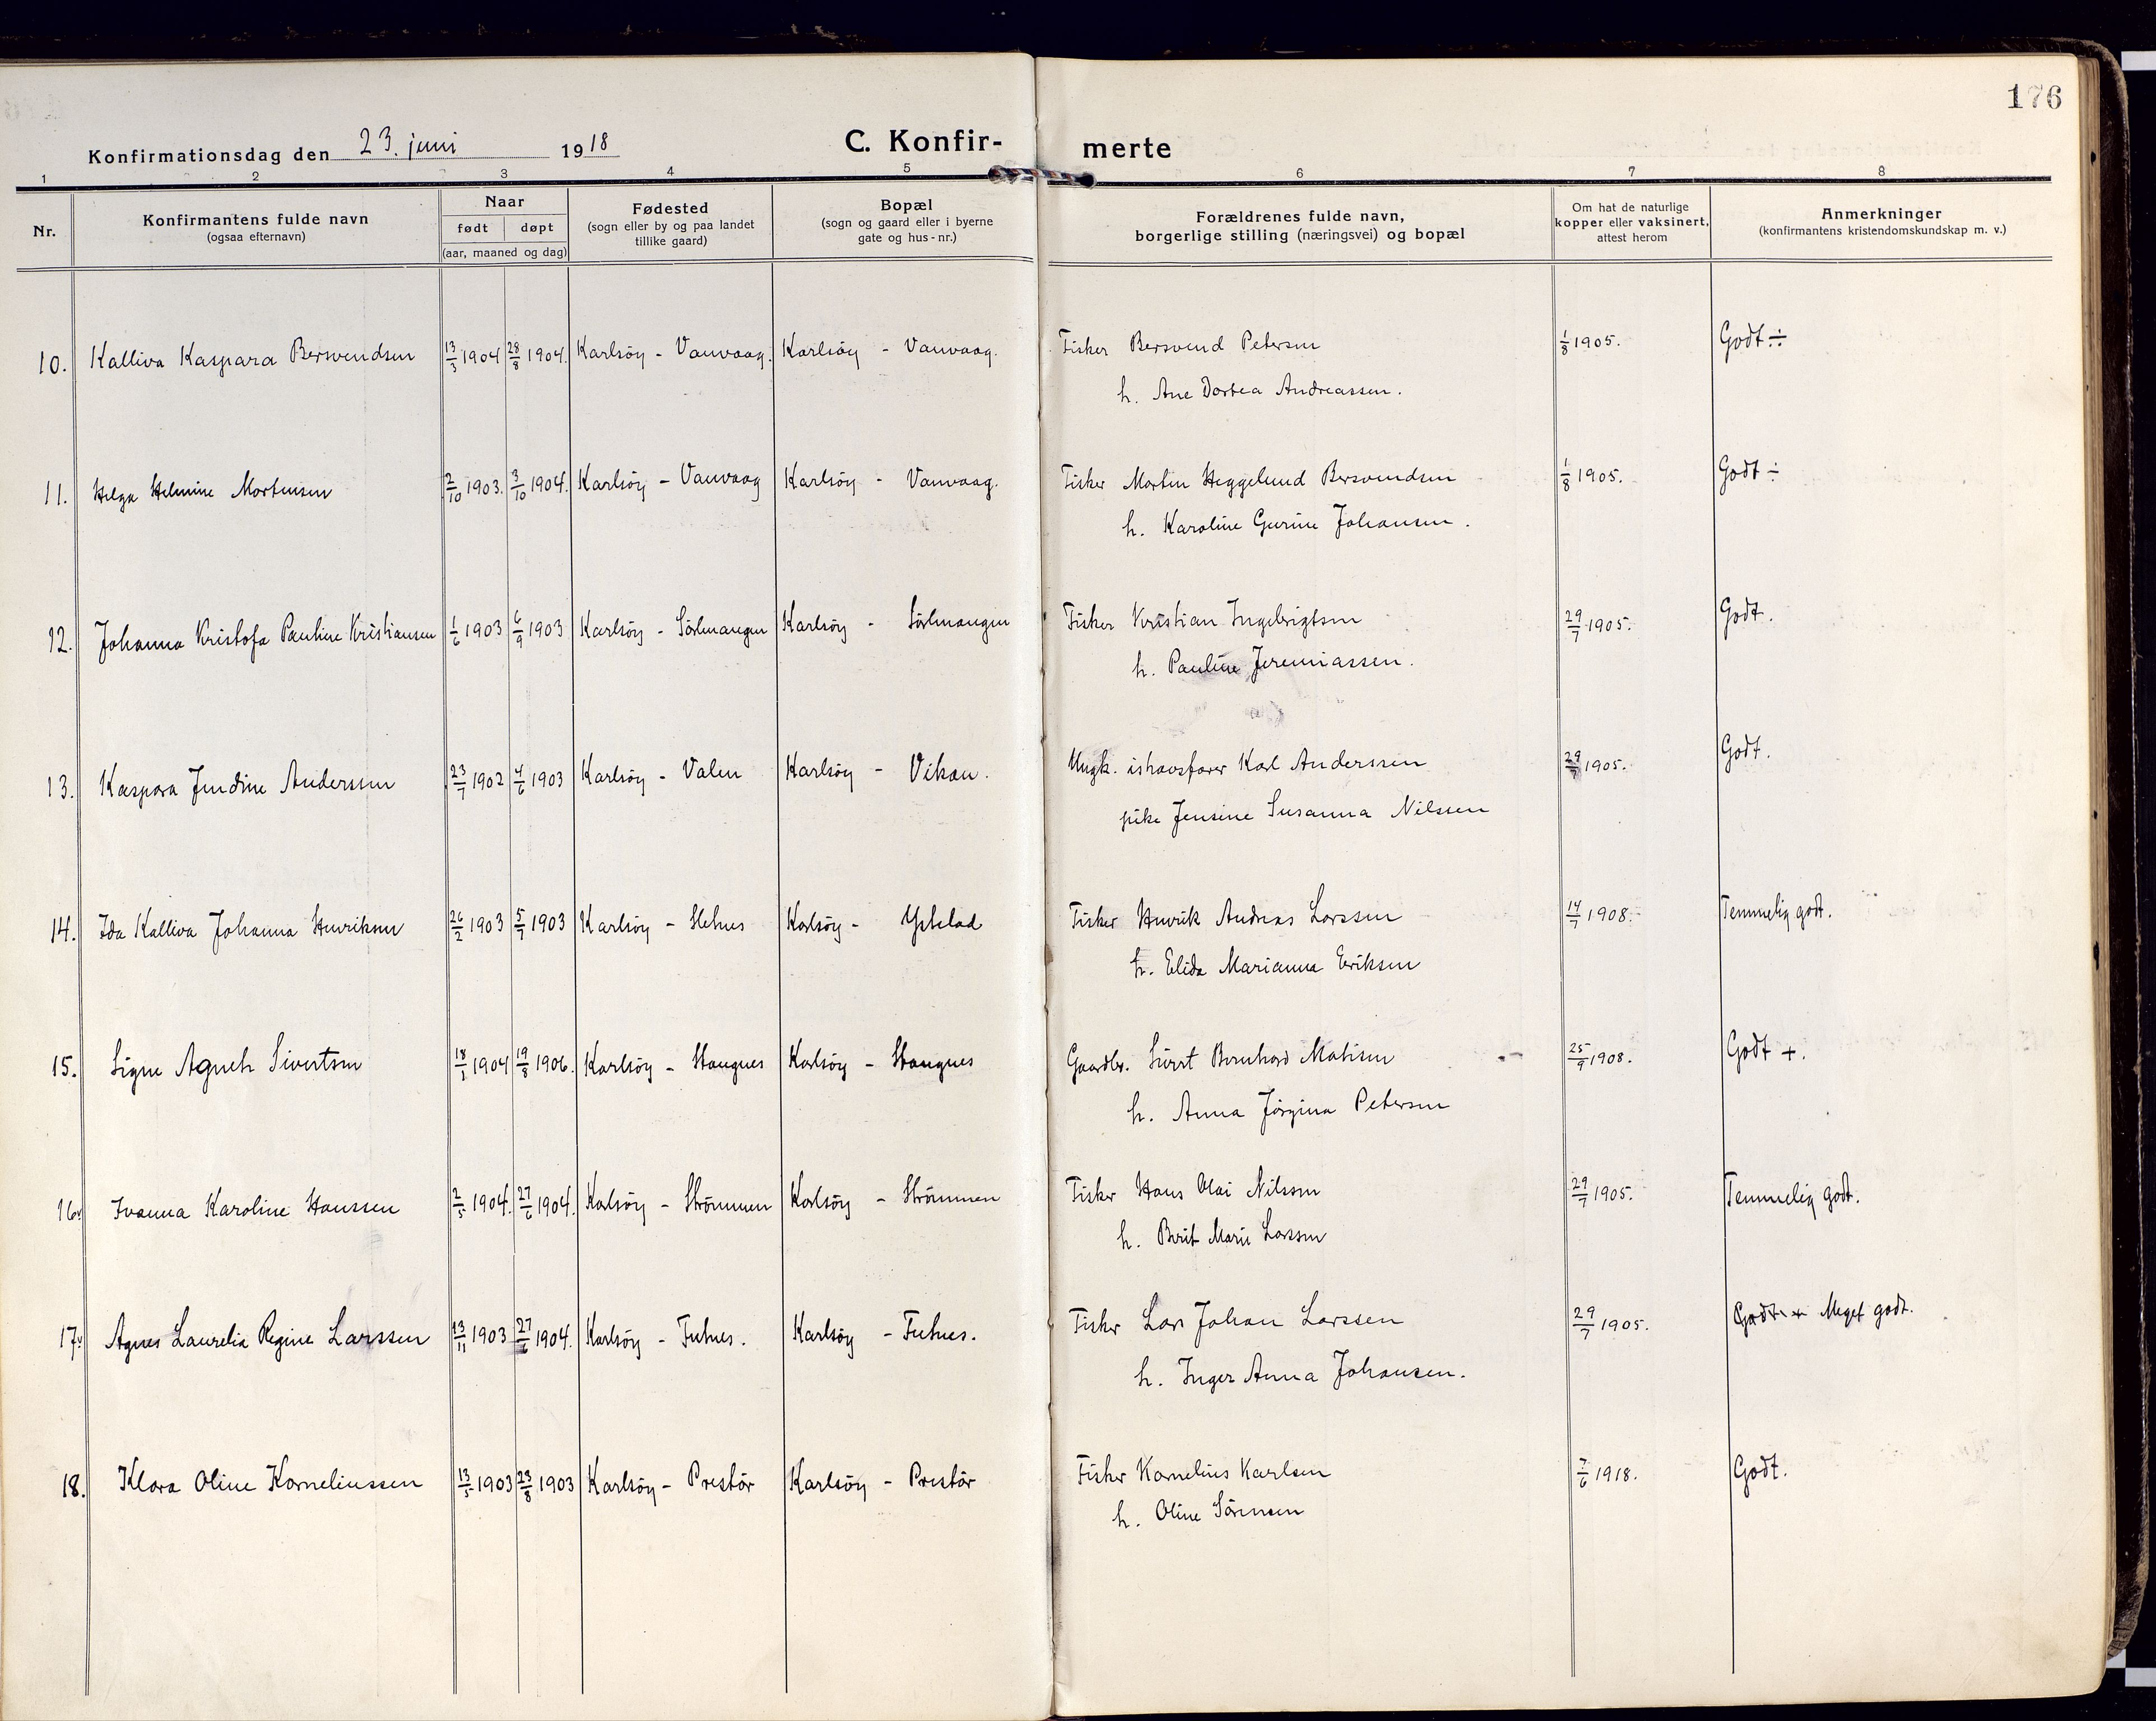 176
Konfirmationsdag den 23. juni 1918
C. Konfir-
merte
1 2 3 4 5 6 7 8
Nr.
Konfirmantens fulde navn
(ogsaa efternavn)
Naar
født døpt
(aar, maaned og dag)
Fødested
(sogn eller by og paa landet
tillike gaard)
Bopæl
(sogn og gaard eller i byerne
gate og hus-nr.)
Forældrenes fulde navn,
borgerlige stilling (næringsvei) og bopæl
Om hat de naturlige
kopper eller vaksinert,
attest herom
Anmerkninger
(konfirmantens kristendomskundskap m. v.)
10. Kalliva Kaspara Bersvendsen 13/3 1904 28/8 1904. Karlsöy - Vanvaag. Karlsöy - Vanvaag. Fisker Bersvend Petersen 1/8 1905. Godt ÷
h. Ane Dortea Andreassen.
11. Helga Helmine Mortensen 2/10 1903. 3/10 1904. Karlsöy - Vanvaag Karlsöy - Vanvaag. Fisker Martin Heggelund Bersvendsen 1/8 1905. Godt ÷
h. Karoline Gurine Johansen.
12. Johanna Kristofa Pauline Kristiansen 1/6 1903 6/9 1903 Karlsöy - Sörlenangen Karlsöy - Sörlenangen Fisker Kristian Ingebrigtsen 29/7 1905. Godt.
h. Pauline Jeremiassen.
13. Kaspara Jendine Anderssen 23/7 1902 4/6 1903 Karlsöy - Valen Karlsöy - Vikan. Ungk. ishavsfarer Karl Anderssen 29/7 1905. Godt.
pike Jensine Susanna Nilssen
14. Ida Kalliva Johanna Henriksen 26/2 1903 5/7 1903 Karlsöy - Helnes Karlsöy - Fisker Henrik Andreas Larssen 14/7 1908. Temmelig godt.
h. Elida Marianna Eriksen
15. Signe Agneth Sivertsen 18/1 1904 19/8 1906. Karlsöy - Stangnes Karlsöy - Stangnes Gaardbr. Sivert Bernhard Matisen 25/9 1908. Godt +.
h. Anna Jörgina Petersen
16. Ivanna Karoline Hanssen 2/5 1904. 27/6 1904. Karlsöy - Strömmen Karlsöy - Strömmen Fisker Hans Olai Nilssen 29/7 1905. Temmelig godt.
h. Berit Marie Larssen
17. Agnes Laurelia Regine Larssen 13/11 1903 27/6 1904. Karlsöy - Futnes. Karlsöy - Futnes. Fisker Lars Johan Larssen 29/7 1905. Godt + Meget godt.
h. Inger Anna Johansen.
18. Klara Oline Korneliussen 13/5 1903 23/8 1903 Karlsöy - Prestör Karlsöy - Prestör Fisker Kornelius Karlsen 7/6 1918. Godt.
h. Oline Sörensen